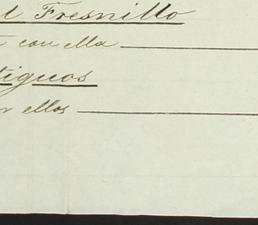 el Fresnillo
con ella
tiguos
r ellos